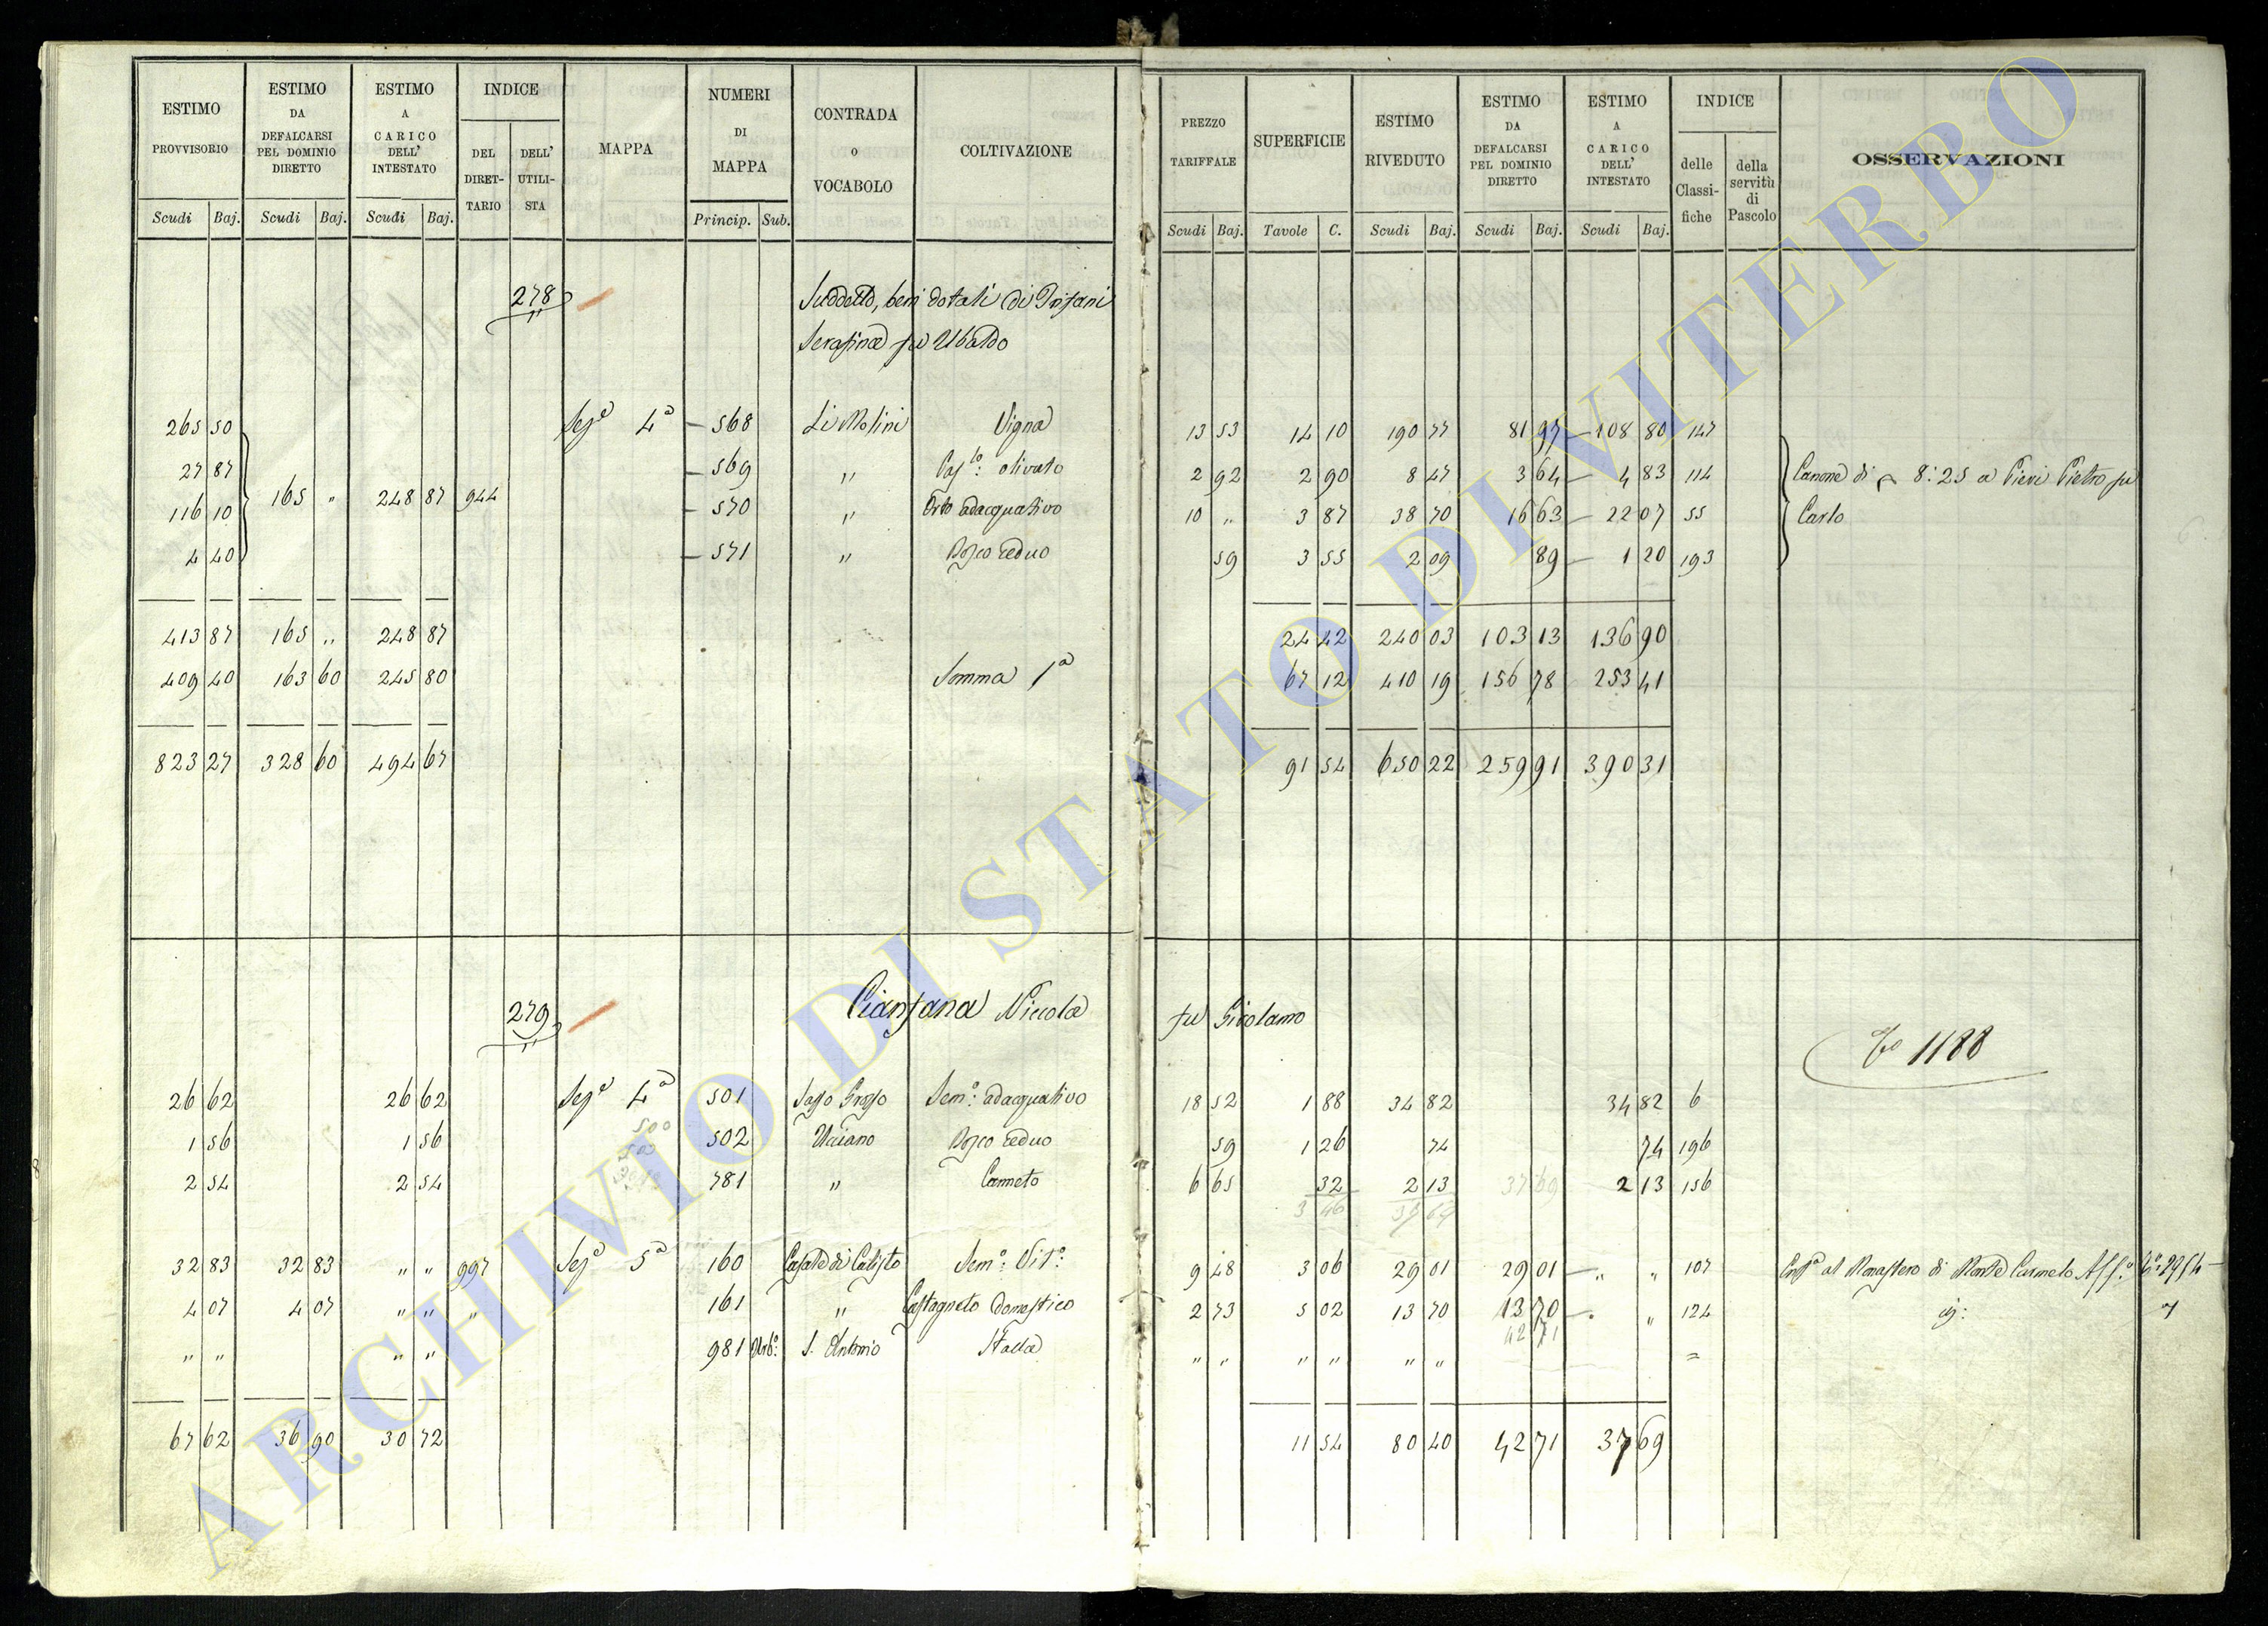 ESTIMO PROVVISORIO | ESTIMO DA DEFALCARSI PEL DOMINIO DIRETTO | ESTIMO A CARICO DELL' INTESTATO | INDICE | MAPPA | NUMERI DI MAPPA | CONTRADA o VOCABOLO | COLTIVAZIONE | PREZZO TARIFFALE | SUPERFICIE | ESTIMO RIVEDUTO | ESTIMO DA DEFALCARSI PEL DOMINIO DIRETTO | ESTIMO A CARICO DELL' INTESTATO | INDICE | OSSERVAZIONI
DEL DIRETTARIO | DELL' UTILISTA | delle Classifiche | della servitù di Pascolo
Scudi | Baj. | Scudi | Baj. | Scudi | Baj. | Princip. | Sub. | Scudi | Baj. | Tavole | C. | Scudi | Baj. | Scudi | Baj. | Scudi | Baj.
278 Suddetto, beni dotali di
Serafina fu Ubaldo
265 50 | Sezᵉ 4ª | 568 | Li Molini | Vigna | 13 53 | 14 10 | 190 77 | 81 97 | 108 80 | 147
27 87 | 569 | " | olivato | 2 92 | 2 90 | 8 47 | 3 64 | 4 83 | 114 | Canone di 8:25 a Pieri Pietro fu
116 10 | 165 " | 248 87 | 944 | 570 | " | Orto adacquativo | 10 " | 3 87 | 38 70 | 16 63 | 22 07 | 55 | Carlo
4 40 | 571 | " | Bosco ceduo | 59 | 3 55 | 2 09 | 89 | 1 20 | 193
413 87 | 165 " | 248 87 | 24 42 | 240 03 | 103 13 | 136 90
409 40 | 163 60 | 245 80 | Somma 1ª | 67 12 | 410 19 | 156 78 | 253 41
823 27 | 328 60 | 494 67 | 91 54 | 650 22 | 259 91 | 390 31
279 Cianfana Niccola fu Girolamo
1188
26 62 | 26 62 | Sezᵉ 4ª | 501 | Sasso Grosso | Sem.º adacquativo | 18 52 | 1 88 | 34 82 | 34 82 | 6
1 56 | 1 56 | 500 | 502 | Bosco ceduo | 59 | 1 26 | 74 | 74 | 196
2 54 | 2 54 | 781 | " | Canneto | 6 65 | 32 | 2 13 | 37 69 | 2 13 | 156
3 46 | 37 69
32 83 | 32 83 | " " | 997 | Sezᵉ 5ª | 160 | Casale di Calisto | Sem.º Vit.º | 9 48 | 3 06 | 29 01 | 29 01 | " " | 107 | al Monastero di Monte Carmelo
4 07 | 4 07 | " " | " | 161 | " | Castagneto domestico | 2 73 | 5 02 | 13 70 | 13 70 | " | 124
42 71
" " | " " | 981 | S. Antonio | Stalla | " " | " " | " " | =
67 62 | 36 90 | 30 72 | 11 54 | 80 40 | 42 71 | 37 69
ARCHIVIO DI STATO DI VITERBO